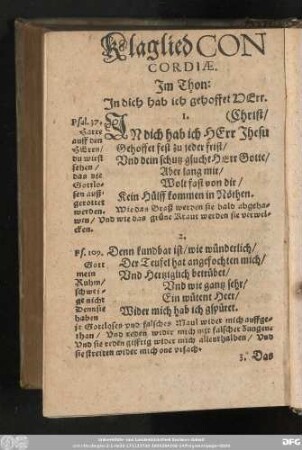 Klaglied CON
CORDIÆ.
Im Thon:
In dich hab ich gehoffet HErr.
1.
Psal. 37. IN dich hab ich HErr Jhesu (Christ/
Harre auff den HErrn/ Gehoffet fest zu jeder frist/
du wirst sehen/ Und dein schutz gsucht HErr Gotte/
das die Gottlosen Aber lang mit/
Wolt fast von dir/
außgerottet werden. Kein Hülff kommen in Nöthen.
Wie das Graß werden sie bald abgehawen/
Und wie das grüne Kraut werden sie verwelcken.
2.
Ps. 109. Denn kundbar ist/ wie wünderlich/
Gott mein Der Teufel hat angefochten mich/
Ruhm/ Und Hertziglich betrübet/
schweige nicht Und wie gantz sehr/
Ein wütent Heer/
Denn sie haben Wider mich hab ich gspüret.
jr Gottloses und falsches Maul wider mich auffgethan/
Und reden wider mich mit falscher Zungen/
Und sie reden gifftig wider mich allenthalben/ Und
sie streiten wider mich one ursach.
3. Das